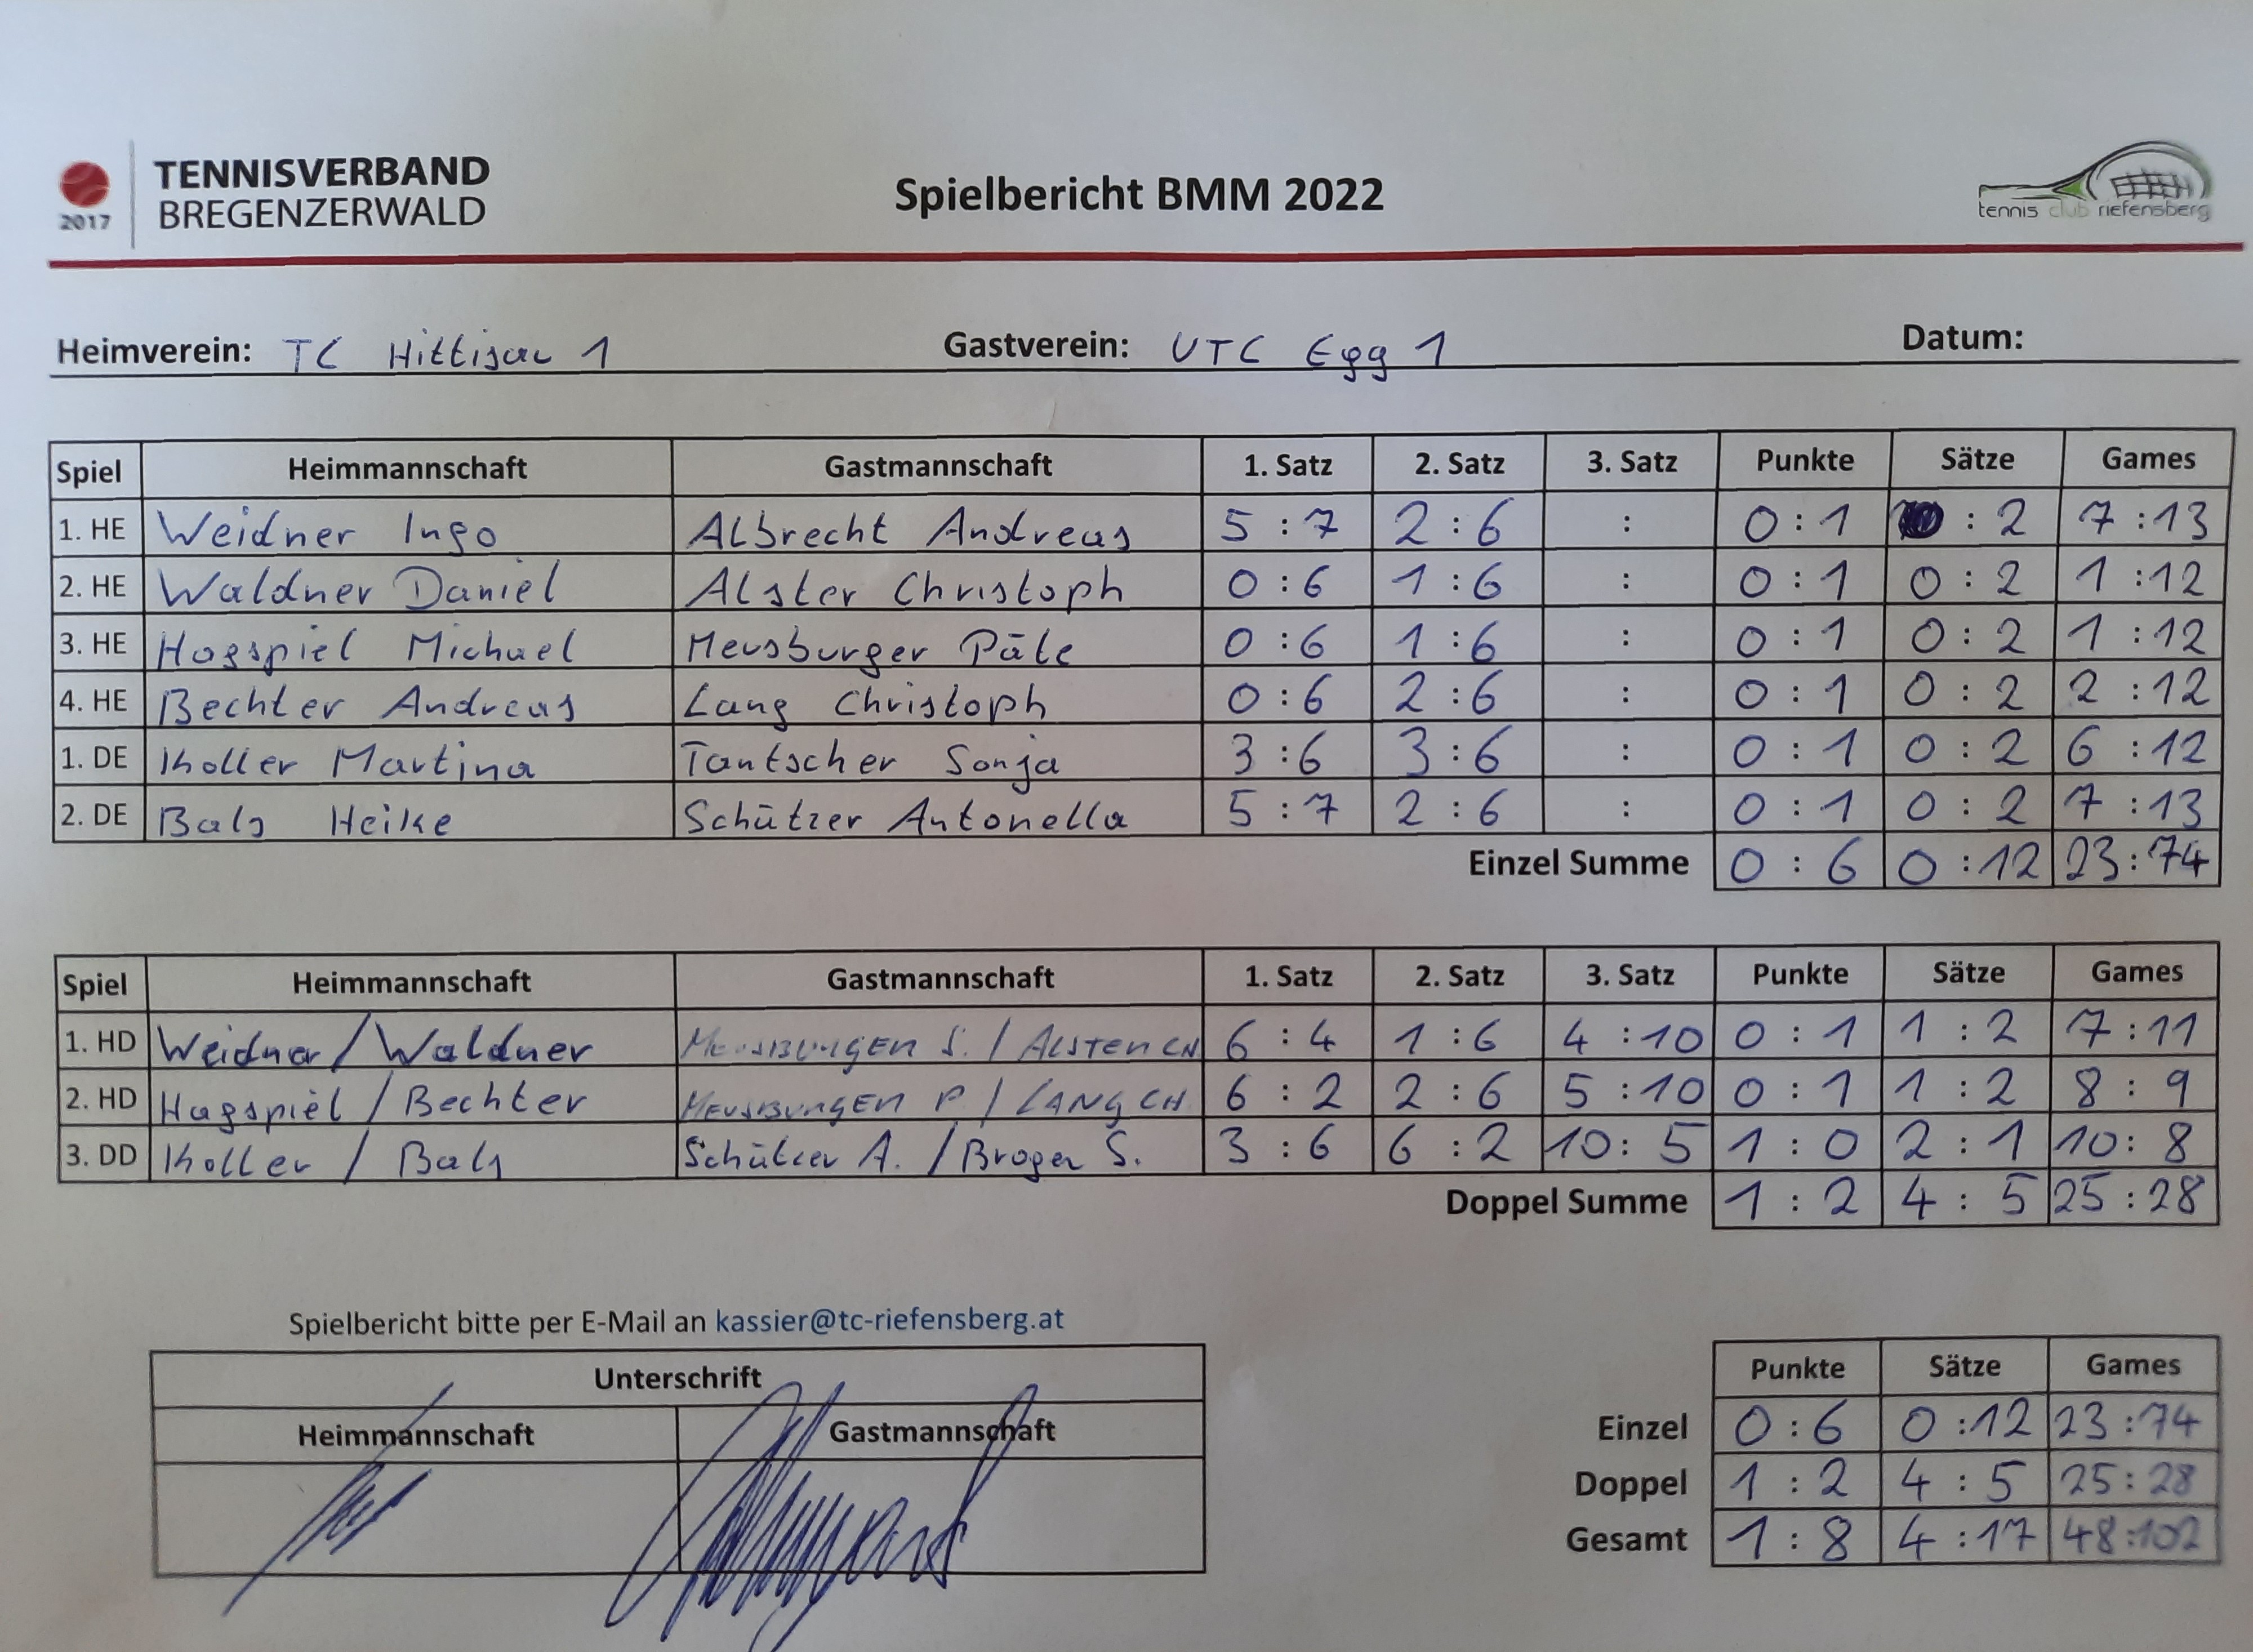 TENNISVERBAND
BREGENZERWALD
2017
Spielbericht BMM 2022
tennis club riefensberg
Heimverein: TC Hittisau 1 Gastverein: UTC Egg 1 Datum:
Spiel Heimmannschaft Gastmannschaft 1. Satz 2. Satz 3. Satz Punkte Sätze Games
1. HE Weidner Ingo Albrecht Andreas 5 : 7 2 : 6 : 0 : 1 : 2 7 : 13
2. HE Waldner Daniel Alster Christoph 0 : 6 1 : 6 : 0 : 1 0 : 2 1 : 12
3. HE Hagspiel Michael Meusburger Päte 0 : 6 1 : 6 : 0 : 1 0 : 2 1 : 12
4. HE Bechter Andreas Lang Christoph 0 : 6 2 : 6 : 0 : 1 0 : 2 2 : 12
1. DE Koller Martina Tantscher Sonja 3 : 6 3 : 6 : 0 : 1 0 : 2 6 : 12
2. DE Bals Heike Schützer Antonella 5 : 7 2 : 6 : 0 : 1 0 : 2 7 : 13
Einzel Summe 0 : 6 0 : 12 23 : 74
Spiel Heimmannschaft Gastmannschaft 1. Satz 2. Satz 3. Satz Punkte Sätze Games
1. HD Weidner / Waldner MEUSBURGER S. / ALSTER CH 6 : 4 1 : 6 4 : 10 0 : 1 1 : 2 7 : 11
2. HD Hagspiel / Bechter MEUSBURGER P / LANG CH. 6 : 2 2 : 6 5 : 10 0 : 1 1 : 2 8 : 9
3. DD Koller / Bals Schützer A. / Broger S. 3 : 6 6 : 2 10 : 5 1 : 0 2 : 1 10 : 8
Doppel Summe 1 : 2 4 : 5 25 : 28
Spielbericht bitte per E-Mail an kassier@tc-riefensberg.at
Unterschrift
Heimmannschaft Gastmannschaft
Punkte Sätze Games
Einzel 0 : 6 0 : 12 23 : 74
Doppel 1 : 2 4 : 5 25 : 28
Gesamt 1 : 8 4 : 17 48 : 102